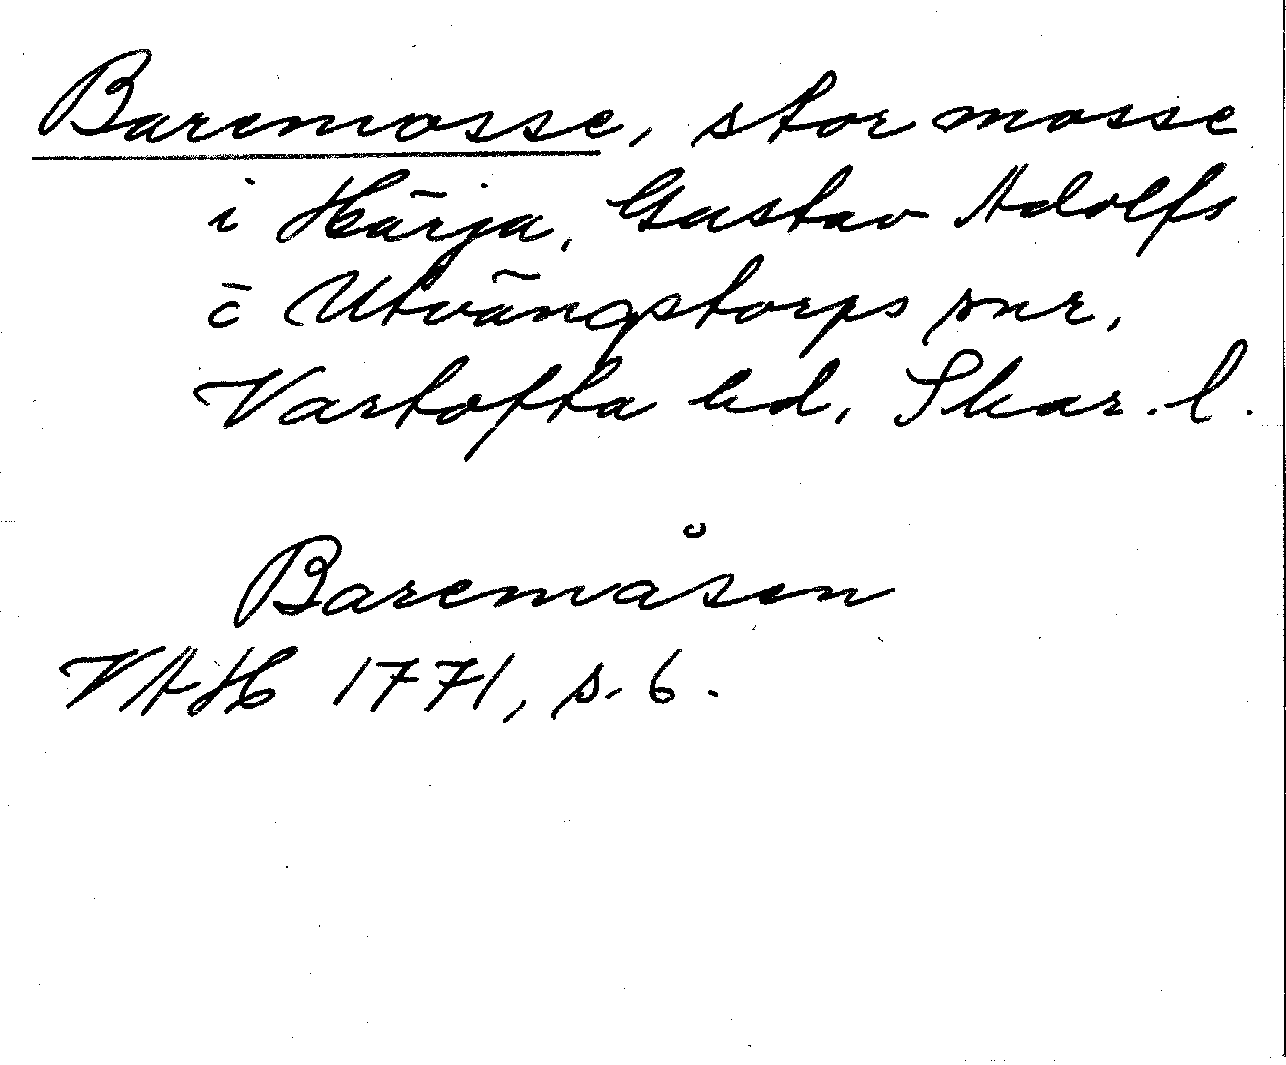 Baremosse, stor mosse
i Härja, Gustav Adolfs
o Utvängstorps snr,
Vartofta hd, Skar. l.
Baremåsen
VAH 1771, s. 6.